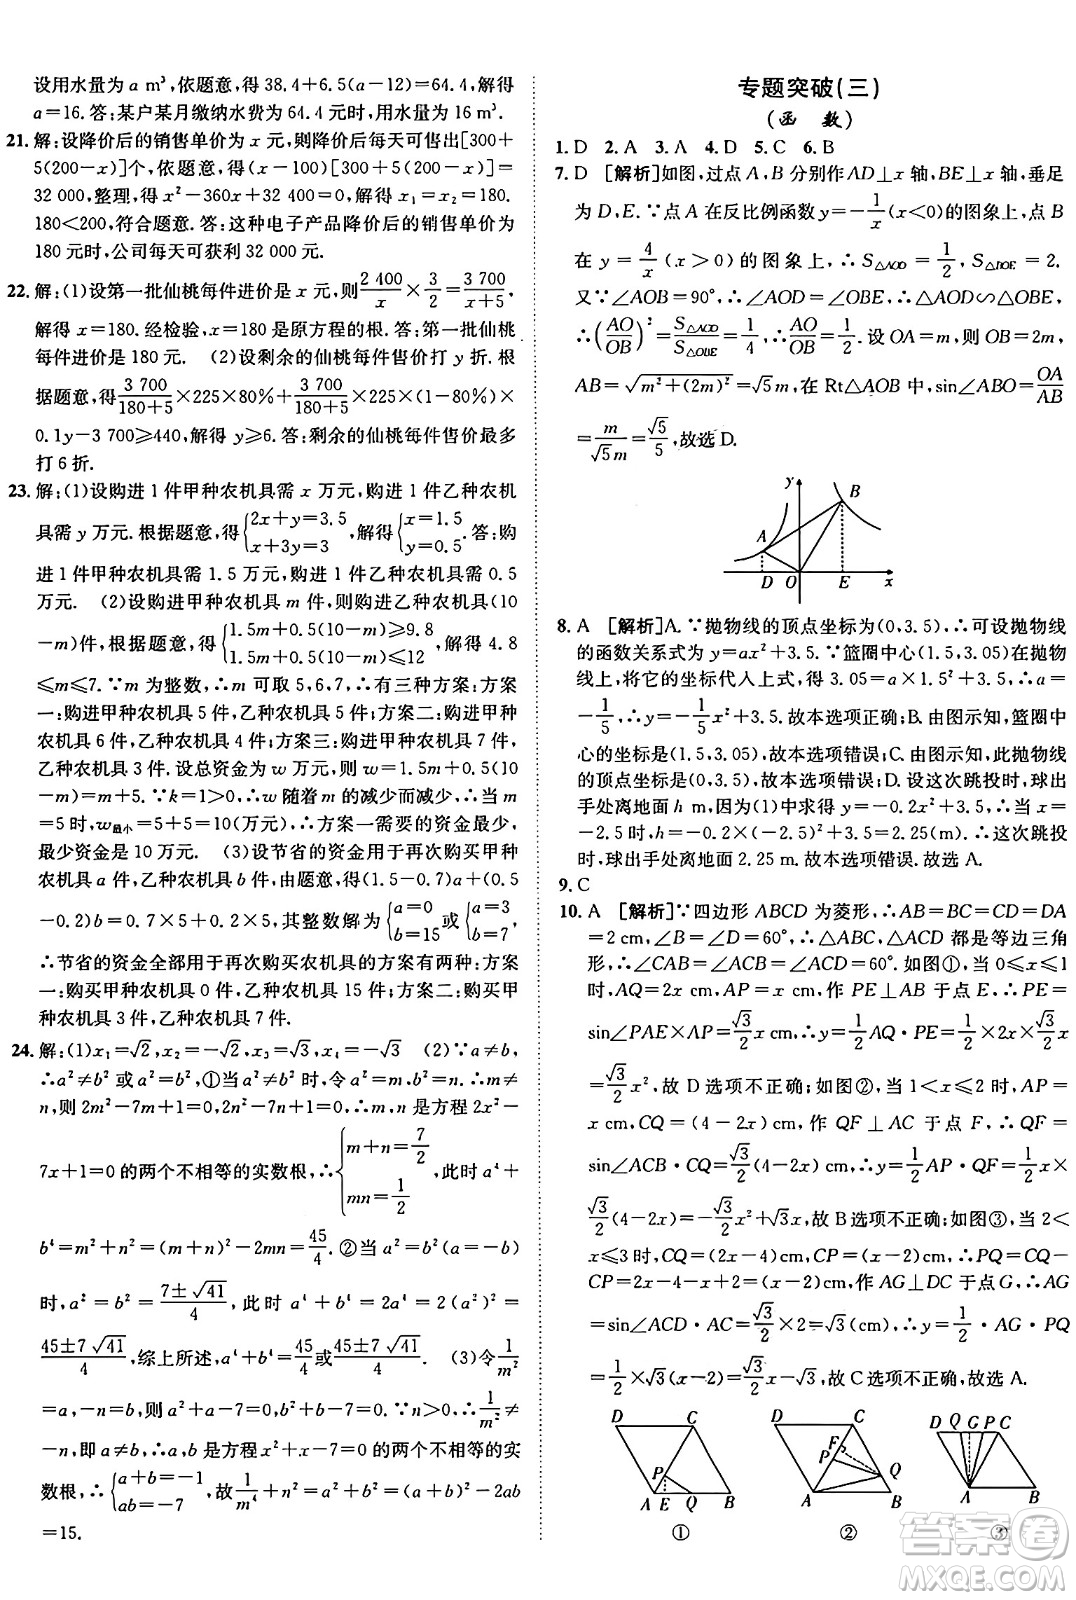 设用水量为 a m³,依题意,得 38.4+6.5(a-12)=64.4,解得
a=16.答:某户某月缴纳水费为 64.4 元时,用水量为 16 m³.
21.解:设降价后的销售单价为 x 元,则降价后每天可售出[300+
5(200-x)]个,依题意,得(x-100)[300+5(200-x)]=
32 000,整理,得 x²-360x+32 400=0,解得 x₁=x₂=180.
180<200,符合题意.答:这种电子产品降价后的销售单价为
180 元时,公司每天可获利 32 000 元.
22.解:(1)设第一批仙桃每件进价是 x 元,则 2 400/x × 3/2 = 3 700/(x+5),
解得 x=180.经检验,x=180 是原方程的根.答:第一批仙桃
每件进价是 180 元. (2)设剩余的仙桃每件售价打 y 折.根
据题意,得 3 700/(180+5) ×225×80%+ 3 700/(180+5) ×225×(1-80%)×
0.1y-3 700≥440,解得 y≥6.答:剩余的仙桃每件售价最多
打 6 折.
23.解:(1)设购进 1 件甲种农机具需 x 万元,购进 1 件乙种农机
具需 y 万元.根据题意,得{2x+y=3.5 x+3y=3,解得{x=1.5 y=0.5.答:购
进 1 件甲种农机具需 1.5 万元,购进 1 件乙种农机具需 0.5
万元. (2)设购进甲种农机具 m 件,则购进乙种农机具(10
-m)件,根据题意,得{1.5m+0.5(10-m)≥9.8 1.5m+0.5(10-m)≤12,解得 4.8
≤m≤7.∵m 为整数,∴m 可取 5,6,7,∴有三种方案:方案
一:购进甲种农机具 5 件,乙种农机具 5 件;方案二:购进甲种
农机具 6 件,乙种农机具 4 件;方案三:购进甲种农机具 7 件,
乙种农机具 3 件.设总资金为 w 万元,则 w=1.5m+0.5(10
-m)=m+5.∵k=1>0,∴w 随着 m 的减少而减少,∴当 m
=5 时,w最小=5+5=10(万元),∴方案一需要的资金最少,
最少资金是 10 万元. (3)设节省的资金用于再次购买甲种农
机具 a 件,乙种农机具 b 件,根据题意,得(1.5-0.7)a+(0.5
-0.2)b=0.7×5+0.2×5,其整数解为{a=0 b=15 或{a=3 b=7,
∴节省的资金全部用于再次购买农机具的方案有两种:方案
一:购买甲种农机具 0 件,乙种农机具 15 件;方案二:购买甲
种农机具 3 件,乙种农机具 7 件.
24.解:(1)x₁=√2,x₂=-√2,x₃=√3,x₄=-√3 (2)∵a≠b,
∴a²≠b² 或 a²=b²,①当 a²≠b² 时,令 a²=m,b²=n,∴m≠
n,则 2m²-7m+1=0,2n²-7n+1=0,∴m,n 是方程 2x²-
7x+1=0 的两个不相等的实数根,∴{m+n=7/2 mn=1/2,此时 a⁴+
b⁴=m²+n²=(m+n)²-2mn=45/4.②当 a²=b²(a=-b)
时,a²=b²=(7±√41)/4,此时 a⁴+b⁴=2a⁴=2(a²)²=
(45±7√41)/4,综上所述,a⁴+b⁴=45/4 或 (45±7√41)/4. (3)令 1/m²
=a,-n=b,则 a²+a-7=0,b²+b-7=0.∵n>0,∴1/m²≠
-n,即 a≠b,∴a,b 是方程 x²+x-7=0 的两个不相等的实
数根,∴{a+b=-1 ab=-7,故 1/m⁴+n²=a²+b²=(a+b)²-2ab
=15.
专题突破(三)
(函 数)
1.D 2.A 3.A 4.D 5.C 6.B
7.D [解析]如图,过点 A,B 分别作 AD⊥x 轴,BE⊥x 轴,垂足
为 D,E.∵点 A 在反比例函数 y=-1/x(x<0)的图象上,点 B
在 y=4/x(x>0)的图象上,∴S△AOD=1/2,S△BOE=2.
又∵∠AOB=90°,∴∠AOD=∠OBE,∴△AOD∽△OBE,
∴(AO/OB)²=S△AOD/S△OBE=1/4,∴AO/OB=1/2.设 OA=m,则 OB=2m,
AB=√(m²+(2m)²)=√5m,在 Rt△AOB 中,sin∠ABO=OA/AB
=m/√5m=√5/5,故选 D.
y B A D O E x
8.A [解析]A.∵抛物线的顶点坐标为(0,3.5),∴可设抛物线
的函数关系式为 y=ax²+3.5.∵篮圈中心(1.5,3.05)在抛物
线上,将它的坐标代入上式,得 3.05=a×1.5²+3.5,∴a=
-1/5,∴y=-1/5x²+3.5.故本选项正确;B.由图示知,篮圈中
心的坐标是(1.5,3.05),故本选项错误;C.由图示知,此抛物线
的顶点坐标是(0,3.5),故本选项错误;D.设这次跳投时,球出
手处离地面 h m,因为(1)中求得 y=-0.2x²+3.5,∴当 x=
-2.5 时,h=-0.2×(-2.5)²+3.5=2.25(m).∴这次跳投
时,球出手处离地面 2.25 m.故本选项错误.故选 A.
9.C
10.A [解析]∵四边形 ABCD 为菱形,∴AB=BC=CD=DA
=2 cm,∠B=∠D=60°,∴△ABC,△ACD 都是等边三角
形,∴∠CAB=∠ACB=∠ACD=60°.如图①,当 0≤x≤1
时,AQ=2x cm,AP=x cm,作 PE⊥AB 于点 E,∴PE=
sin∠PAE×AP=√3/2x cm,∴y=1/2AQ·PE=1/2×2x×√3/2x
=√3/2x²,故 D 选项不正确;如图②,当 1<x≤2 时,AP=
x cm,CQ=(4-2x)cm,作 QF⊥AC 于点 F,∴QF=
sin∠ACB·CQ=√3/2(4-2x)cm,∴y=1/2AP·QF=1/2x×
√3/2(4-2x)=-√3/2x²+√3x,故 B 选项不正确;如图③,当 2<
x≤3 时,CQ=(2x-4)cm,CP=(x-2)cm,∴PQ=CQ-
CP=2x-4-x+2=(x-2)cm,作 AG⊥DC 于点 G,∴AG
=sin∠ACD·AC=√3/2×2=√3(cm),∴y=1/2AG·PQ
=1/2×√3(x-2)=√3/2x-√3,故 C 选项不正确,故选 A.
D C P A E Q B
①
D C F P Q A B
②
D Q G P C A B
③
答案圈
MXQE.COM